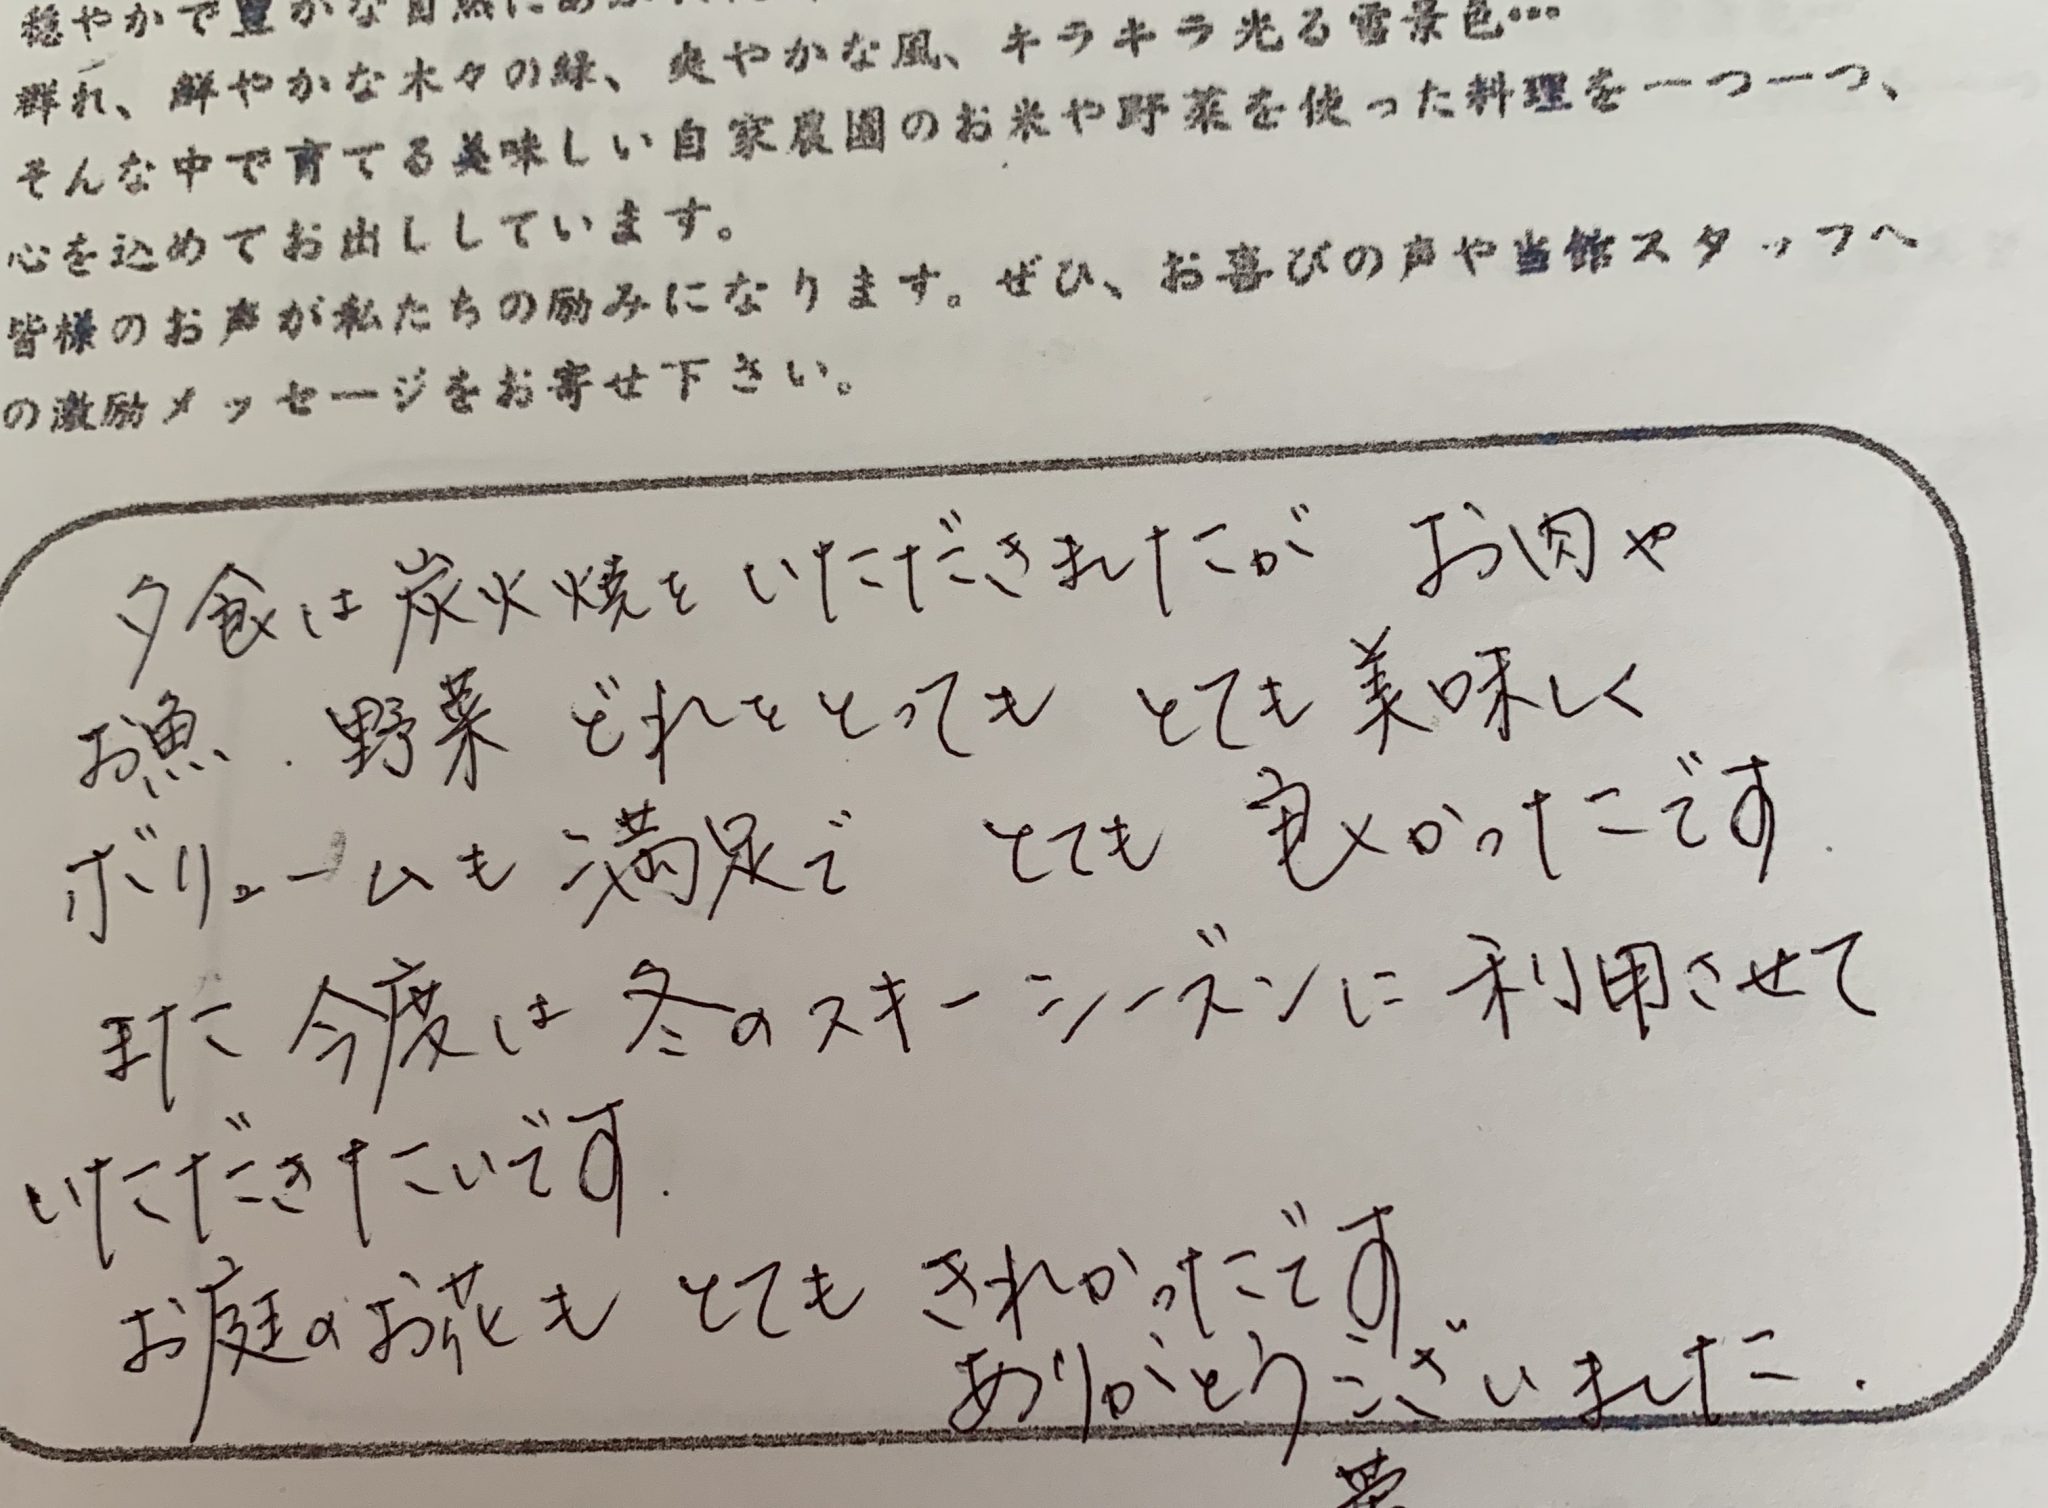 穏やかで豊かな自然に
群れ、鮮やかな木々の緑、爽やかな風、キラキラ光る雪景色…
そんな中で育てる美味しい自家農園のお米や野菜を使った料理を一つ一つ、
心を込めてお出ししています。
皆様のお声が私たちの励みになります。ぜひ、お喜びの声や当館スタッフへ
の激励メッセージをお寄せ下さい。
夕食は炭火焼をいただきましたが お肉や
お魚、野菜 どれをとっても とても美味しく
ボリュームも満足で とても 良かったです.
また 今度は冬のスキーシーズンに利用させて
いただきたいです.
お庭のお花も とても きれかったです.
ありがとうございました.